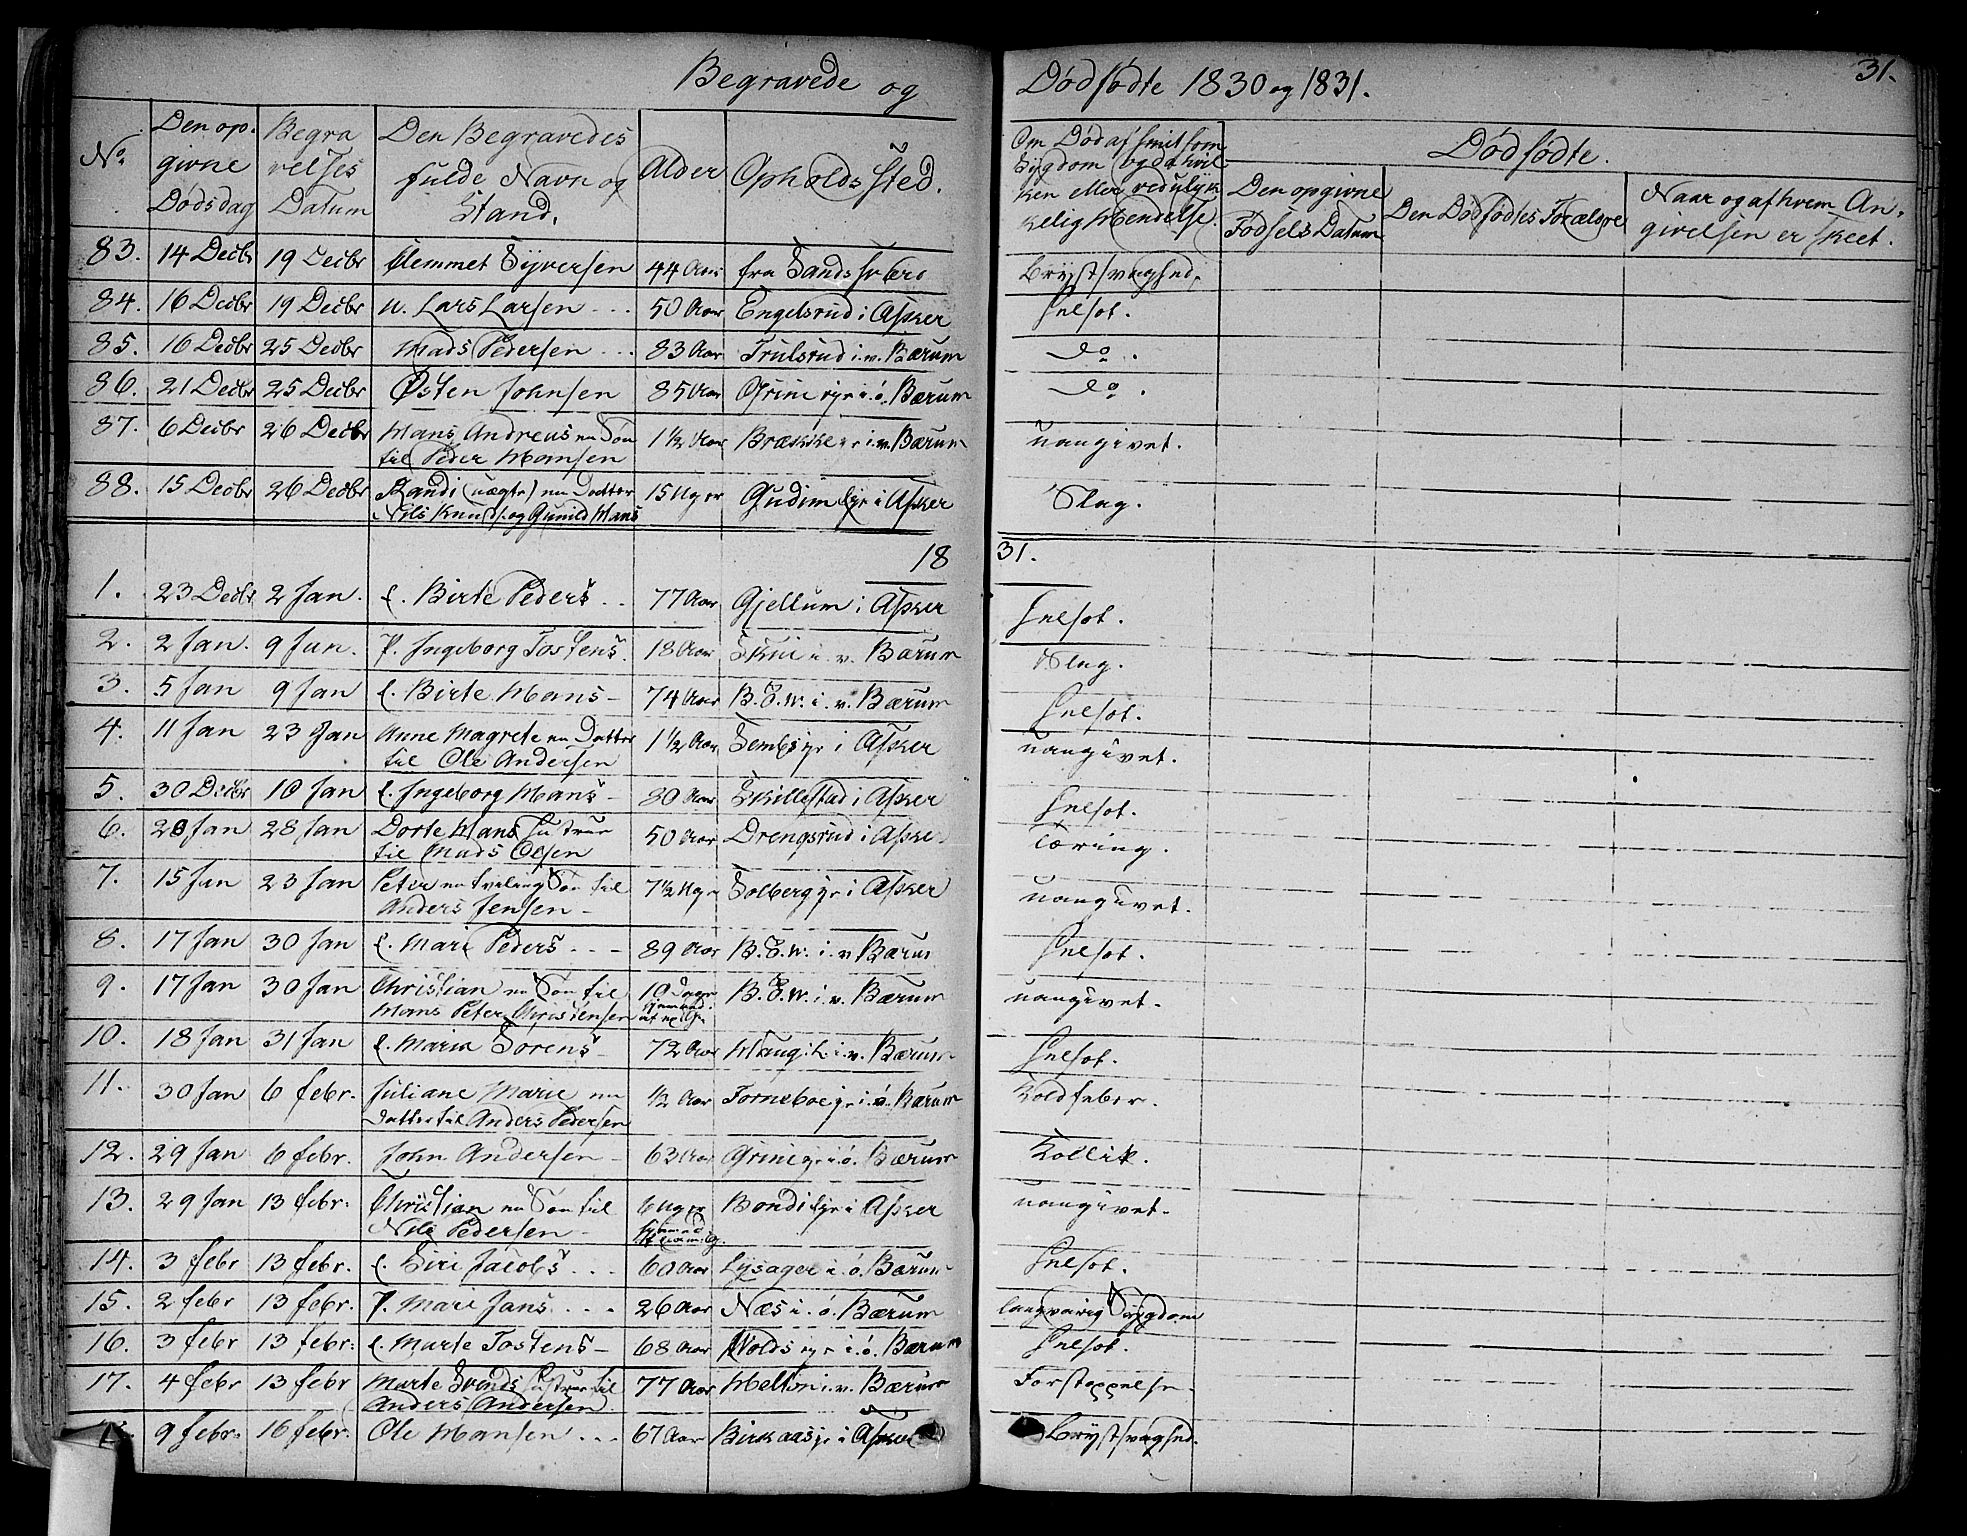 Begravede og Dödfödte 1830 og 1831. 31.
No. Den opgivne Dødsdag Begravelses Datum Den Begravedes fulde Navn og Stand. Alder Opholds Sted. Om Død af smitsom Sygdom og da hvilken eller ved ulykkelig Hendelse. Dödfödte.
Den opgivne Fødsels Datum Den Dödfödtes Forældre Naar og af hvem Angivelsen er skeet.
83. 14 Decbr 19 Decbr Clemmet Syversen 44 Aar fra Sandsværd Brystsvaghed.
84. 16 Decbr 19 Decbr u. Lars Larsen 50 Aar Engelsrud i Asker Helsot.
85. 16 Decbr 25 Decbr Mads Pedersen 83 Aar Trulsrud i v. Bærum do.
86. 21 Decbr 25 Decbr Østen Johnsen 85 Aar Grini eye i. ö. Bærum do.
87. 6 Decbr 26 Decbr Hans Andreas en Søn 1½ Aar Brække eye i v. Bærum uangivet.
til Peder Hansen
88. 15 Decbr 26 Decbr Randi (uægte) en Datter 15 Uger Gudim eye i Asker Slag.
Nils Knuds. og Gunild Hans
1831.
1. 23 Decbr 2 Jan. E. Birte Peders 77 Aar Gjellum i Asker Helsot.
2. 2 Jan. 9 Jan. P. Ingeborg Tostens. 18 Aar Skui i. v. Bærum Slag.
3. 5 Jan 9 Jan E. Birte Hans 74 Aar B. S. W. i. v. Bærum Helsot.
4. 11 Jan 23 Jan Anne Magrete en Datter 1½ Aar Sembs eye i Asker uangivet.
til Ole Andersen
5. 30 Decbr 10 Jan E. Ingeborg Hans 80 Aar Skillestad i Asker Helsot.
6. 20 Jan 28 Jan Dorte Hans Hustrue 50 Aar Drengsrud i Asker Tæring.
til Mads Olsen
7. 15 Jan 23 Jan Peter en Tviling Søn til 7½ Uger Solberg eye i Asker uangivet.
Anders Jensen
8. 17 Jan 30 Jan E. Mari Peders 89 Aar B. S. W. i. v Bærum Helsot.
9. 17 Jan 30 Jan Christian en Søn til 10 Dage B. S. W. i. v. Bærum uangivet.
Hans Peter Christensen
10. 18 Jan 31 Jan E. Maria Sörens 72 Aar Haug i. v. Bærum Helsot.
11. 30 Jan 6 febr. Juliane Marie en ½ Aar Torneboe eye i. ö. Bærum Koldfeber.
Datter til Anders Pedersen
12. 29 Jan 6 febr. John Andersen 63 Aar Grini eye i. ö. Bærum Kollik.
13. 29 Jan 13 febr. Christian en Søn til 6 Uger Bondi eye i Asker uangivet.
Nils Pedersen
14. 3 febr 13 febr. E. Siri Jacobs 60 Aar Lysager i. ö. Bærum Helsot.
15. 2 febr 13 febr. P. Mari Jans 26 Aar Næs i. ö. Bærum langvarig Sygdom
16. 3 febr 13 febr. E. Marte Tostens 68 Aar Wolds eye i. ö. Bærum Helsot.
17. 4 febr 13 febr Marte Svends Hustrue til 77 Aar Hellen i. v. Bærum Forstoppelse.
Anders Andersen
9 febr. 16 febr. Ole Hansen 67 Aar Birkaas eye i Asker Brystsvaghed.